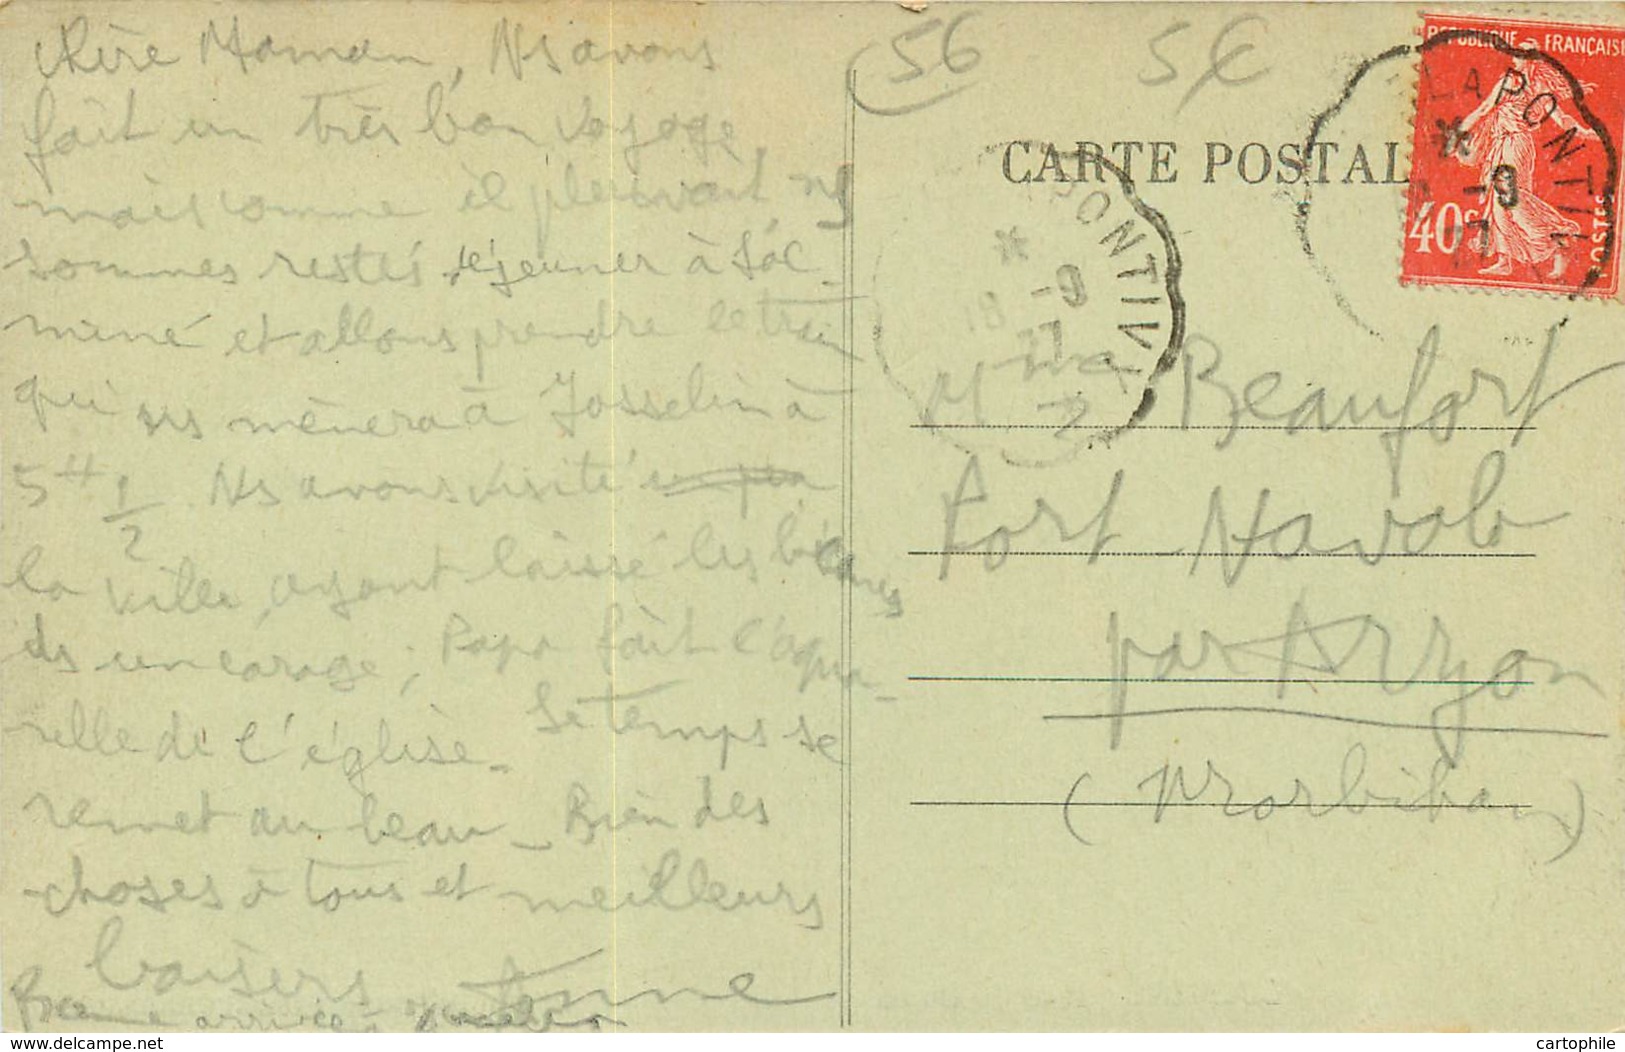 chère Maman, Ns avons
fait un très bon voyage,
mais comme il pleuvait ns
sommes restés déjeuner à Loc
miné et allons prendre le train
qui ns mènera à Josselin à
5 H 1/2 Ns avons visité
la ville, ayant laissé les bécanes
ds un garage; Papa fait l'aqua-
relle de l'église. Le temps se
remet au beau - Bien des
choses à tous et meilleurs
baisers
Bonne arrivée à
56
5€
CARTE POSTALE
REPUBLIQUE FRANÇAISE
40c
POSTES
PONTIVY
-9
LA PONTIV
-9
Mme Beaufort
Port Navalo
par Arzon
(Morbihan)
www.delcampe.net
cartophile